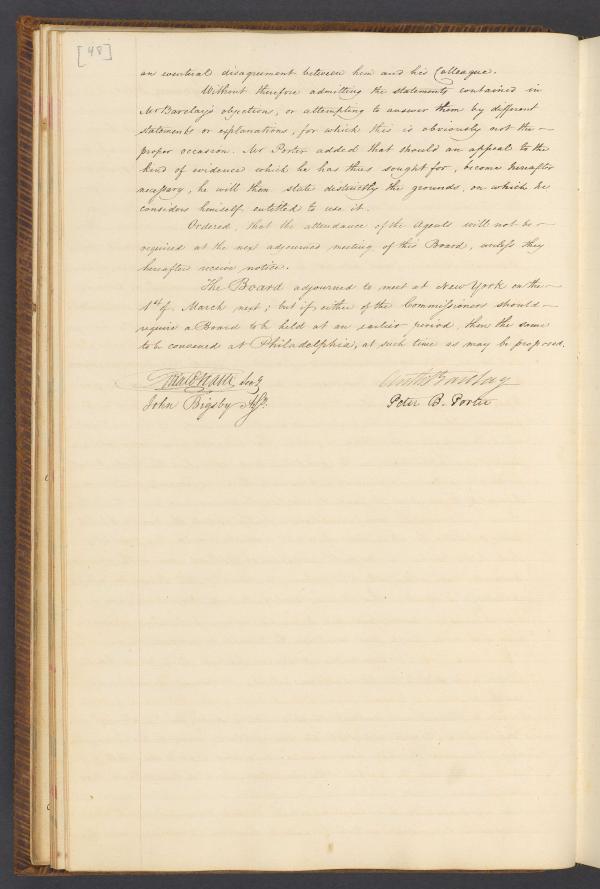 [48]
an eventual disagreement between him and his Colleague.
Without therefore admitting the statements contained in
Mr Barclay's objections, or attempting to answer them by different
statements or explanations, for which this is obviously not the
proper occasion. Mr Porter added that should an appeal to the
kind of evidence which he has thus sought for, become hereafter
necessary, he will then state distinctly the grounds, on which he
considers himself entitled to use it.
Ordered, that the attendance of the Agents will not be
required at the next adjourned meeting of this Board, unless they
hereafter receive notice.
The Board adjourned to meet at New York on the
1st of March next; but if either of the Commissioners should
require a Board to be held at an earlier period, then the same
to be convened at Philadelphia, at such time as may be proposed.
Donald Fraser Secy
Anth: Barclay
John Bigsby Asst.
Peter B. Porter